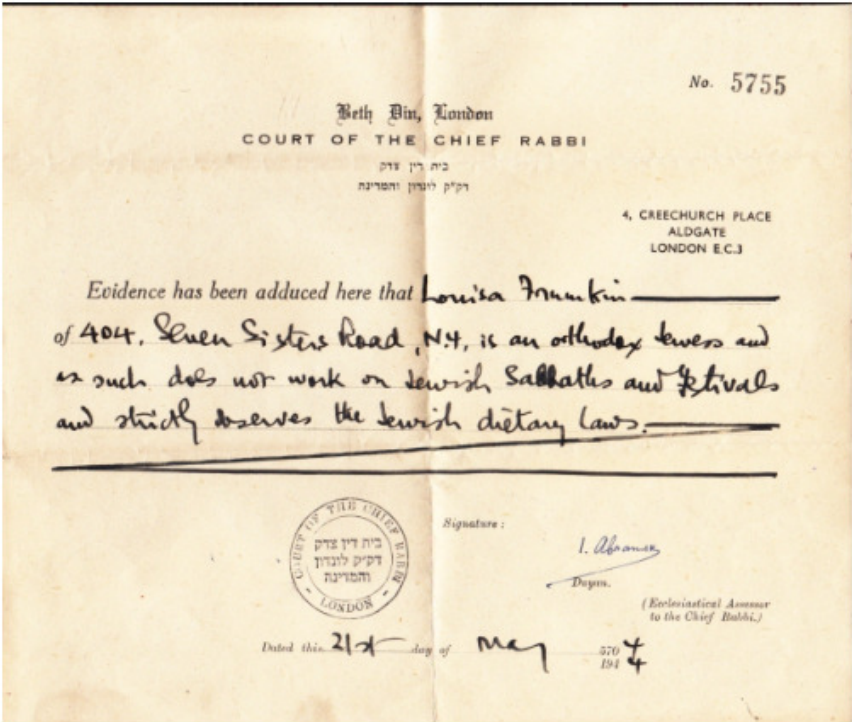 No. 5755
Beth Din, London
COURT OF THE CHIEF RABBI
בית דין צדק
דק״ק לונדון והמדינה
4, CREECHURCH PLACE
ALDGATE
LONDON E.C.3
Evidence has been adduced here that Louisa Frumkin
of 404, Seven Sisters Road, N.4, is an orthodox Jewess and
as such does not work on Jewish Sabbaths and Festivals
and strictly observes the Jewish dietary laws.
COURT OF THE CHIEF RABBI
בית דין צדק
דק״ק לונדון
והמדינה
LONDON
Signature:
I. Abramsky
Dayan.
(Ecclesiastical Assessor
to the Chief Rabbi.)
Dated this 21st day of May 5704
1944